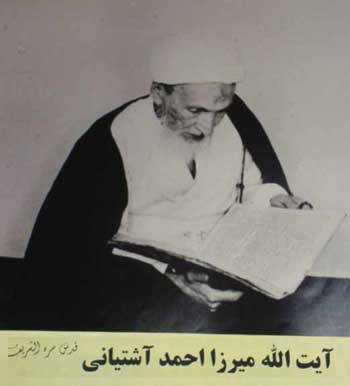 آیت الله میرزا احمد آشتیانی
قدس سره الشریف